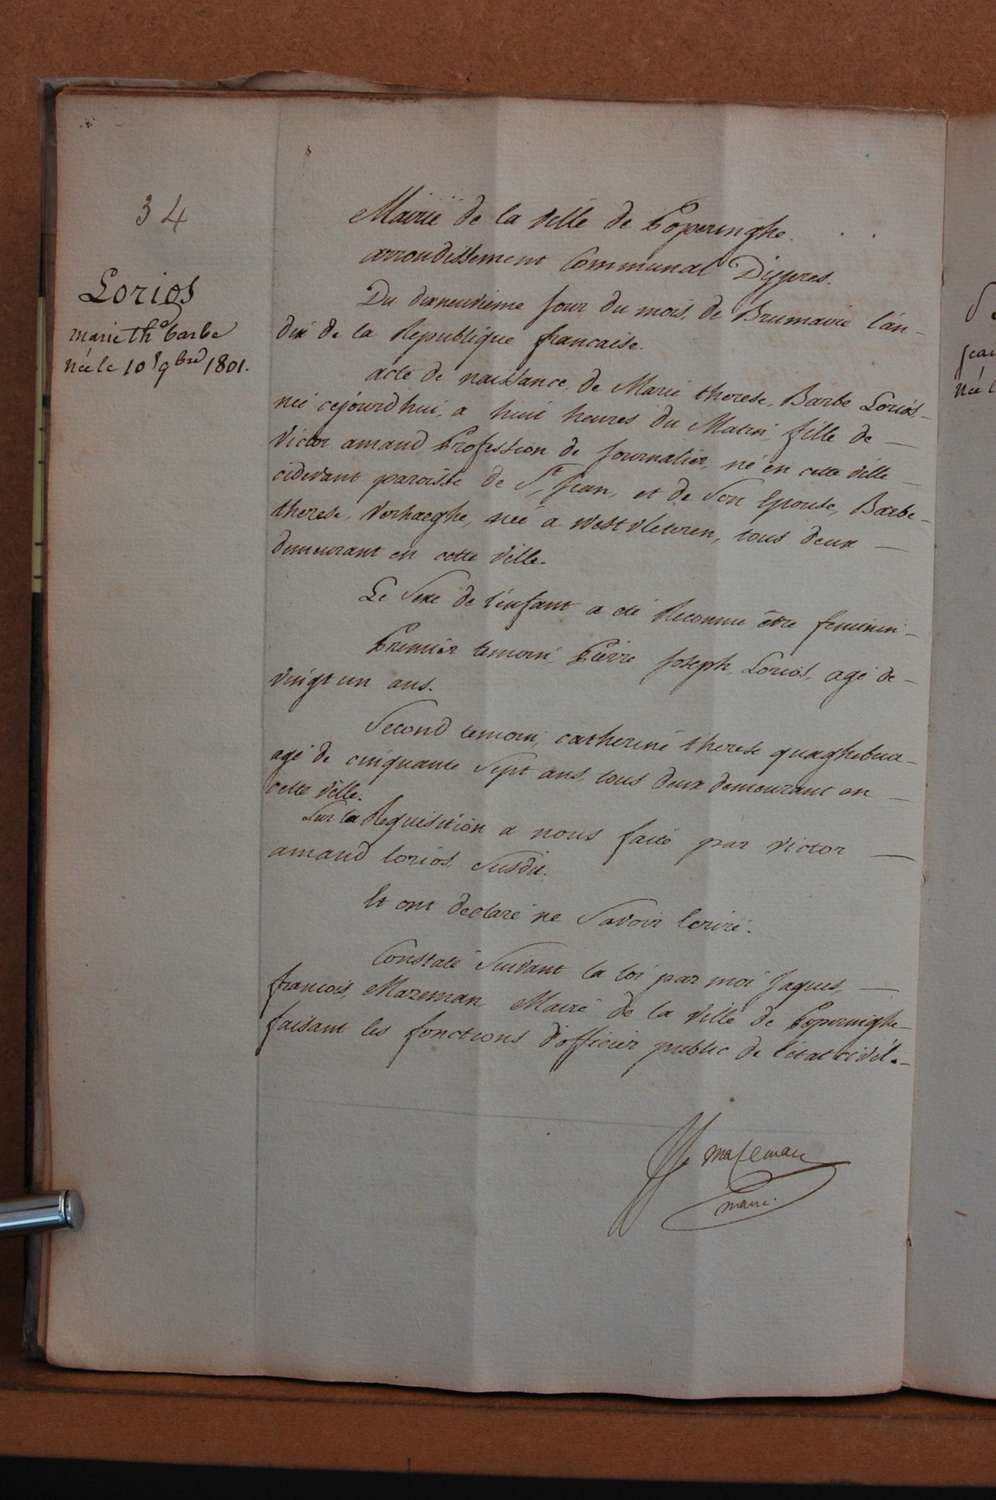 34
Lorios
marie th.e barbe
née le 10 9bre 1801.
Mairie de la ville de Poperinghe.
arrondissement Communal D'ijpres.
Du dixneuvieme jour du mois de Brumaire l'an-
dix de la Republique francaise.
acte de naissance de Marie therese Barbe Lorios-
née cejourdhui a huit heures du Matin fille de -
Victor amand Profession de Journalier, né en cette ville -
cidevant paroisse de St Jean, et de Son Epouse, Barbe-
therese, Verhaeghe, née a westvleteren, tous deux -
demeurant en cette ville.
Le Sexe de l'enfant a été Reconnu être feminin-
Premier temoin Pierre Joseph Lorios, agé de-
vingt un ans.
Second temoin, catherine therese quaghebeur-
agé de cinquante Sept ans, tous deux demeurant en -
cette ville.
Sur la Requisition a nous faite par victor -
amand lorios Susdit.
Et ont declaré ne Savoir Ecrire.
Constaté Suivant la loi par moi Jaques -
francois, Mazeman Maire de la ville de Poperinghe-
faisant les fonctions d'officier public de l'état civil.-
mazeman
maire.
Jean
née l